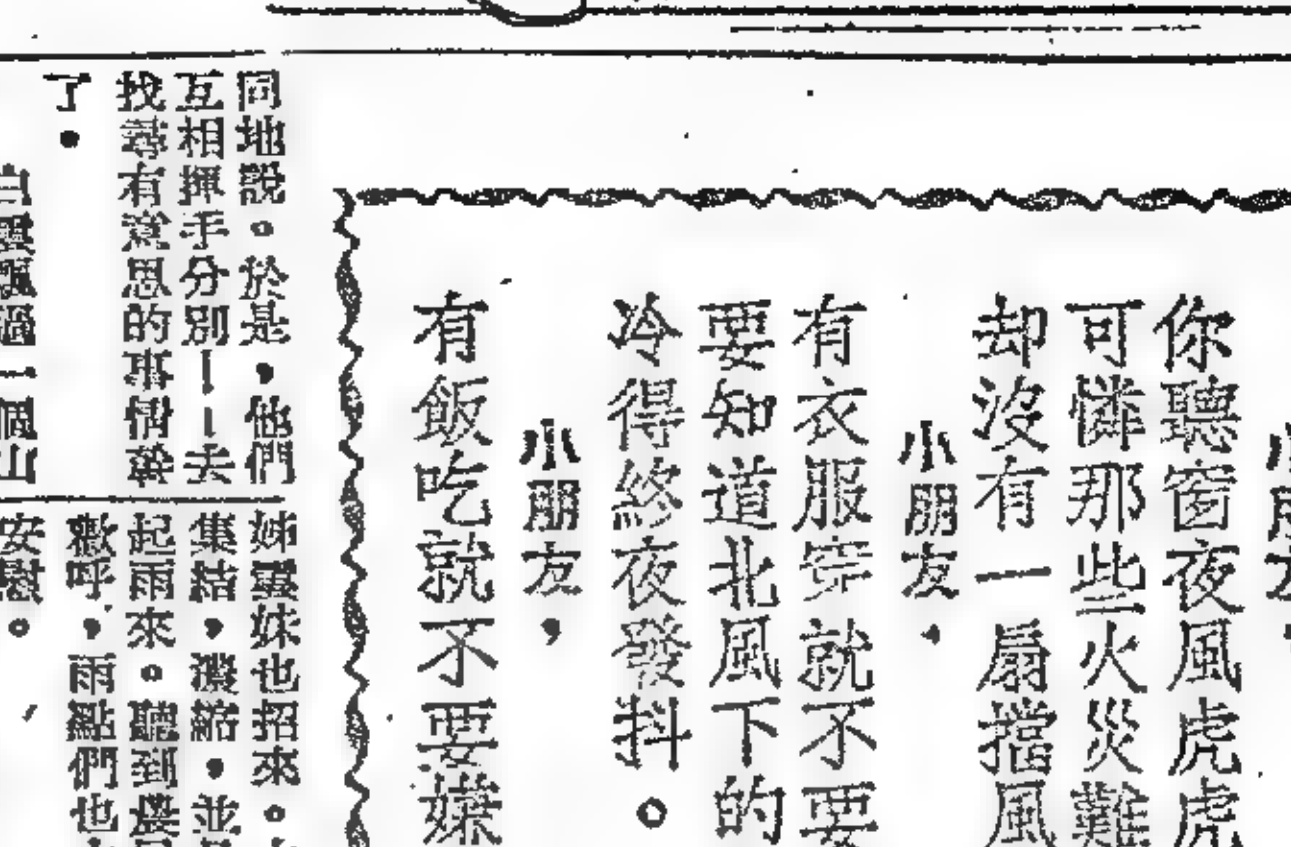 小朋友，
你聽窗夜風虎虎
可憐那些火災難
却沒有一扇擋風
小朋友，
有衣服穿就不要
要知道北風下的
冷得終夜發抖。
小朋友，
有飯吃就不要嫌
同地說。於是，他們
互相揮手分別——去
找尋有意思的事情幹
了。
白雲飄過一個山
姊雲妹也招來。
集結，濃縮，並
起雨來。聽到農
歡呼，雨點們也
安慰。